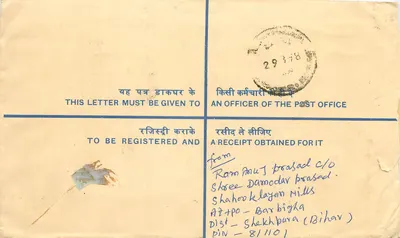 यह पत्र डाकघर के किसी कर्मचारी को दें
THIS LETTER MUST BE GIVEN TO AN OFFICER OF THE POST OFFICE
रजिस्ट्री कराके रसीद ले लीजिए
TO BE REGISTERED AND A RECEIPT OBTAINED FOR IT
from
Ram Anuj prasad c/o
Shree Damodar prasad.
Mills
At+Po - Barbigha
Dist - Shekhpura (Bihar)
PIN - 811101